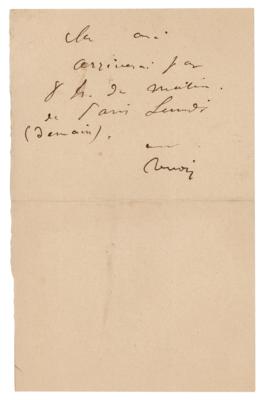 Cher ami
arriverai par
8 h. du matin.
de Paris Lundi
(Demain).
Renoir